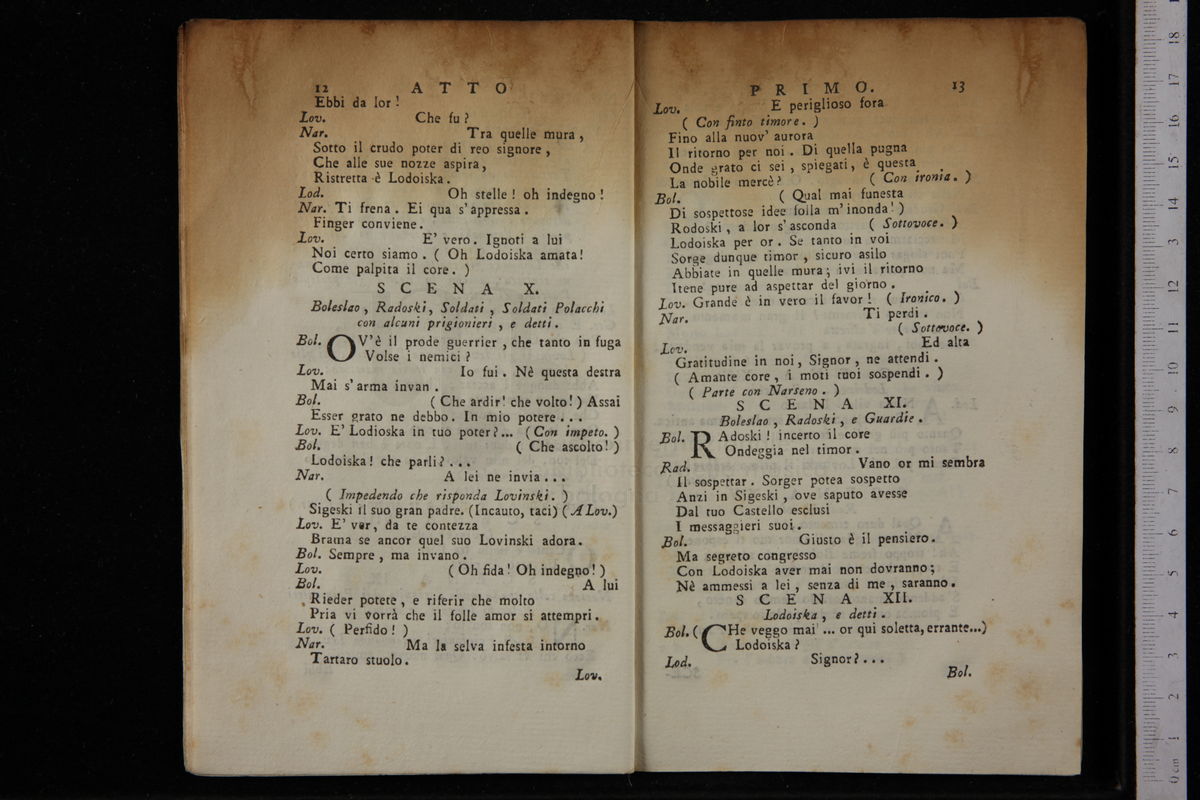 12 ATTO
Ebbi da lor!
Lov. Che fu?
Nar. Tra quelle mura,
Sotto il crudo poter di reo signore,
Che alle sue nozze aspira,
Ristretta è Lodoiska.
Lod. Oh stelle! oh indegno!
Nar. Ti frena. Ei qua s'appressa.
Finger conviene.
Lov. E' vero. Ignoti a lui
Noi certo siamo. (Oh Lodoiska amata!
Come palpita il core.)
SCENA X.
Boleslao, Radoski, Soldati, Soldati Polacchi
con alcuni prigionieri, e detti.
Bol. OV'è il prode guerrier, che tanto in fuga
Volse i nemici?
Lov. Io fui. Nè questa destra
Mai s'arma invan.
Bol. (Che ardir! che volto!) Assai
Esser grato ne debbo. In mio potere...
Lov. E' Lodioska in tuo poter?... (Con impeto.)
Bol. (Che ascolto!)
Lodoiska! che parli?...
Nar. A lei ne invia...
(Impedendo che risponda Lovinski.)
Sigeski il suo gran padre. (Incauto, taci) (A Lov.)
Lov. E' ver, da te contezza
Brama se ancor quel suo Lovinski adora.
Bol. Sempre, ma invano.
Lov. (Oh fida! Oh indegno!)
Bol. A lui
Rieder potete, e riferir che molto
Pria vi vorrà che il folle amor si attempri.
Lov. (Perfido!)
Nar. Ma la selva infesta intorno
Tartaro stuolo.
Lov.
PRIMO. 13
Lov. E periglioso fora
(Con finto timore.)
Fino alla nuov' aurora
Il ritorno per noi. Di quella pugna
Onde grato ci sei, spiegati, è questa
La nobile mercè? (Con ironia.)
Bol. (Qual mai funesta
Di sospettose idee folla m'inonda!)
Rodoski, a lor s'asconda (Sottovoce.)
Lodoiska per or. Se tanto in voi
Sorge dunque timor, sicuro asilo
Abbiate in quelle mura; ivi il ritorno
Itene pure ad aspettar del giorno.
Lov. Grande è in vero il favor! (Ironico.)
Nar. Ti perdi.
(Sottovoce.)
Lov. Ed alta
Gratitudine in noi, Signor, ne attendi.
(Amante core, i moti tuoi sospendi.)
(Parte con Narseno.)
SCENA XI.
Boleslao, Radoski, e Guardie.
Bol. RAdoski! incerto il core
Ondeggia nel timor.
Rad. Vano or mi sembra
Il sospettar. Sorger potea sospetto
Anzi in Sigeski, ove saputo avesse
Dal tuo Castello esclusi
I messaggieri suoi.
Bol. Giusto è il pensiero.
Ma segreto congresso
Con Lodoiska aver mai non dovranno;
Nè ammessi a lei, senza di me, saranno.
SCENA XII.
Lodoiska, e detti.
Bol. (CHe veggo mai ... or qui soletta, errante...)
Lodoiska?
Lod. Signor?...
Bol.